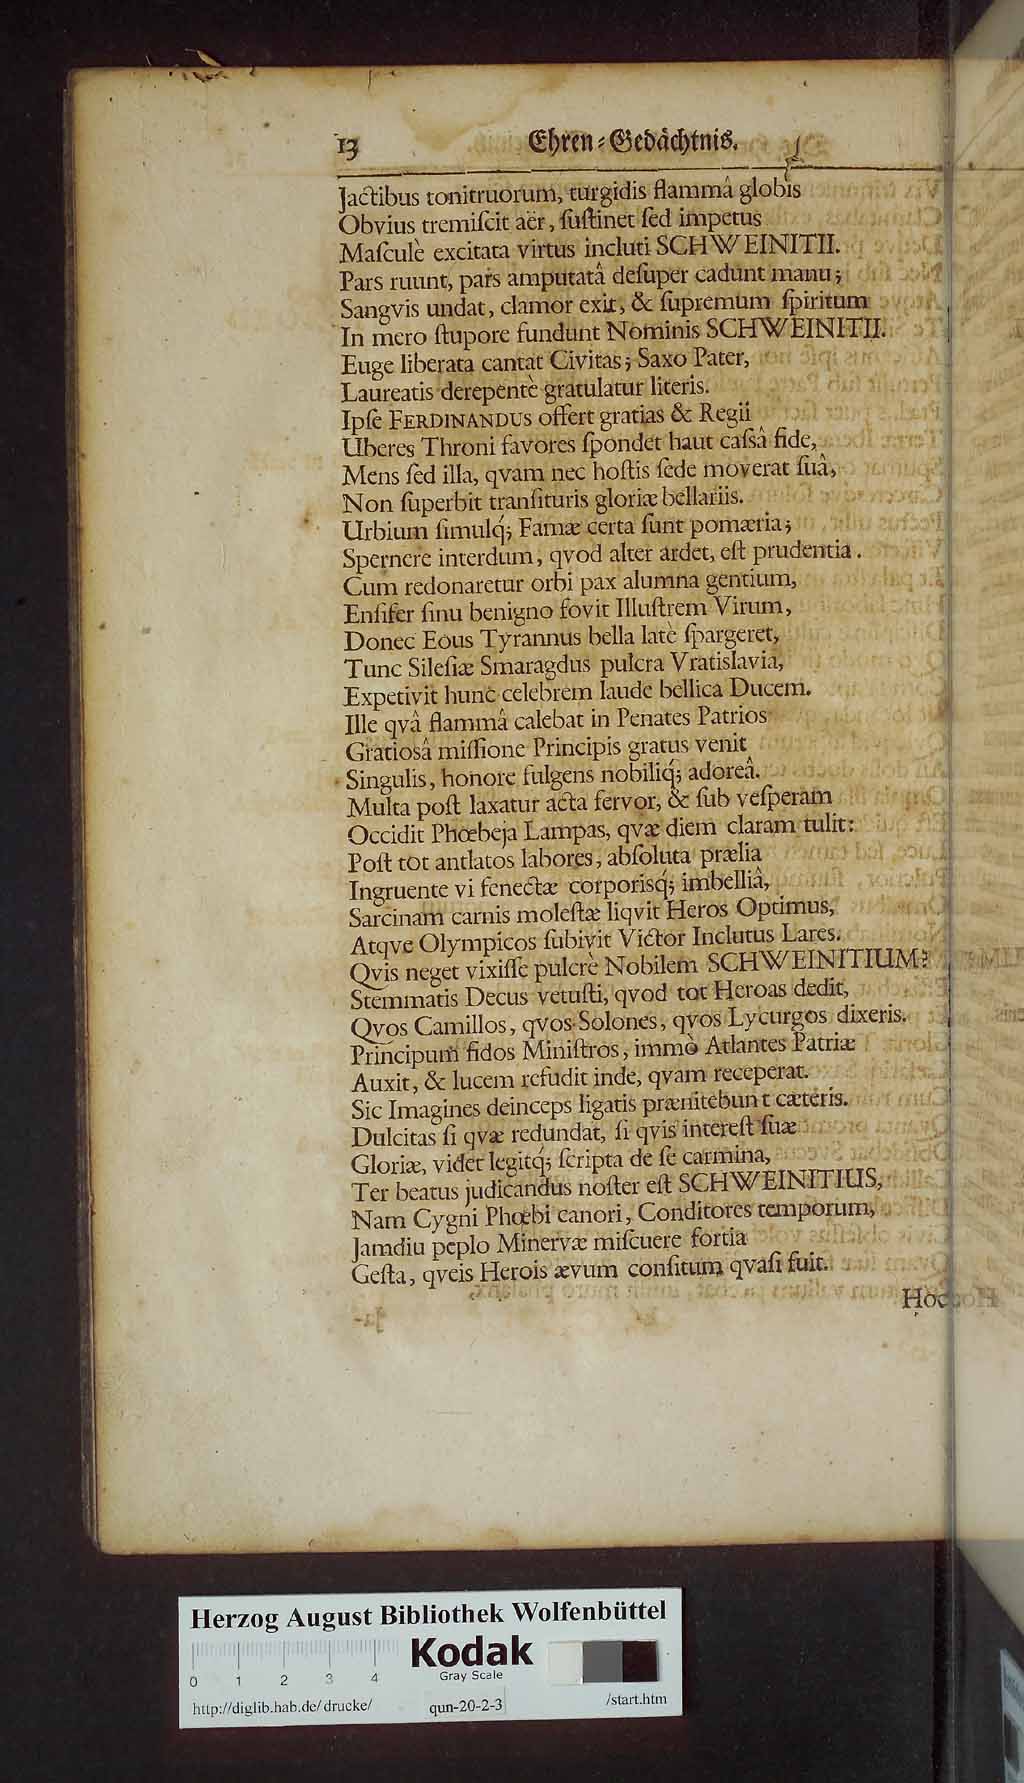 13 Ehren-Gedächtnis.
Jactibus tonitruorum, turgidis flammâ globis
Obvius tremiſcit aër, ſuſtinet ſed impetus
Maſculè excitata virtus incluti SCHWEINITII.
Pars ruunt, pars amputatâ deſuper cadunt manu;
Sangvis undat, clamor exit, & ſupremum ſpiritum
In mero ſtupore fundunt Nominis SCHWEINITII.
Euge liberata cantat Civitas; Saxo Pater,
Laureatis derepentè gratulatur literis.
Ipſe FERDINANDUS offert gratias & Regii
Uberes Throni favores ſpondet haut caſsâ fide,
Mens ſed illa, qvam nec hoſtis ſede moverat ſuâ,
Non ſuperbit tranſituris gloriæ bellariis.
Urbium ſimulq́; Famæ certa ſunt pomæria;
Spernere interdum, qvod alter ardet, eſt prudentia.
Cum redonaretur orbi pax alumna gentium,
Enſifer ſinu benigno fovit Illuſtrem Virum,
Donec Eous Tyrannus bella latè ſpargeret,
Tunc Sileſiæ Smaragdus pulcra Vratislavia,
Expetivit hunc celebrem laude bellica Ducem.
Ille qvâ flammâ calebat in Penates Patrios
Gratiosâ miſſione Principis gratus venit
Singulis, honore fulgens nobiliq́; adoreâ.
Multa poſt laxatur acta fervor, & ſub veſperam
Occidit Phœbeja Lampas, qvæ diem claram tulit:
Poſt tot antlatos labores, abſoluta prælia
Ingruente vi ſenectæ corporisq́; imbelliâ,
Sarcinam carnis moleſtæ liqvit Heros Optimus,
Atqve Olympicos ſubivit Victor Inclutus Lares.
Qvis neget vixiſſe pulcrè Nobilem SCHWEINITIUM?
Stemmatis Decus vetuſti, qvod tot Heroas dedit,
Qvos Camillos, qvos Solones, qvos Lycurgos dixeris.
Principum fidos Miniſtros, immò Atlantes Patriæ
Auxit, & lucem refudit inde, qvam receperat.
Sic Imagines deinceps ligatis prænitebunt cæteris.
Dulcitas ſi qvæ redundat, ſi qvis intereſt ſuæ
Gloriæ, videt legitq́; ſcripta de ſe carmina,
Ter beatus judicandus noſter eſt SCHWEINITIUS,
Nam Cygni Phœbi canori, Conditores temporum,
Jamdiu peplo Minervæ miſcuere fortia
Geſta, qveis Herois ævum conſitum qvaſi fuit.
Hoc
Herzog August Bibliothek Wolfenbüttel
Kodak
Gray Scale
0 1 2 3 4
http://diglib.hab.de/drucke/ qun-20-2-3 /start.htm